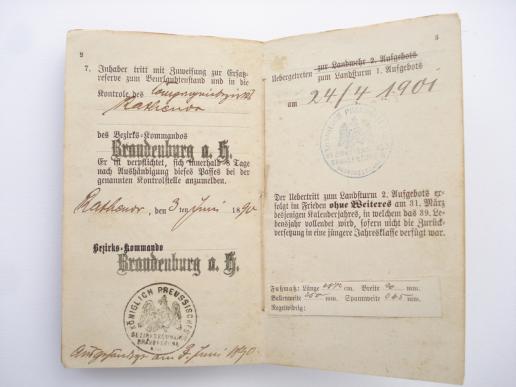 2
7. Inhaber tritt mit Zuweisung zur Ersatz-
reserve zum Beurlaubtenstand und in die
Kontrole des Compagniebezirks
Rathenow
des Bezirks-Kommandos
Brandenburg a. H.
Er ist verpflichtet, sich innerhalb 8 Tage
nach Aushändigung dieses Passes bei der
genannten Kontrolstelle anzumelden.
Rathenow, den 3 ten Juni 1890
Bezirks-Kommando
Brandenburg a. H.
KÖNIGLICH PREUSSISCHES
BEZIRKSCOMMANDO
BRANDENBURG
A/H
Ausgehändigt am 3. Juni 1890.
3
zur Landwehr 2. Aufgebots
Uebergetreten zum Landsturm 1. Aufgebots
am 24/4 1901
KÖNIGLICH PREUSS
Der Uebertritt zum Landsturm 2. Aufgebots er-
folgt im Frieden ohne Weiteres am 31. März
desjenigen Kalenderjahres, in welchem das 39. Le-
bensjahr vollendet wird, sofern nicht die Zurück-
versetzung in eine jüngere Jahresklasse verfügt war.
Fußmaß: Länge cm. Breite mm.
Ballenweite 250 mm. Spannweite mm.
Regelwidrig: